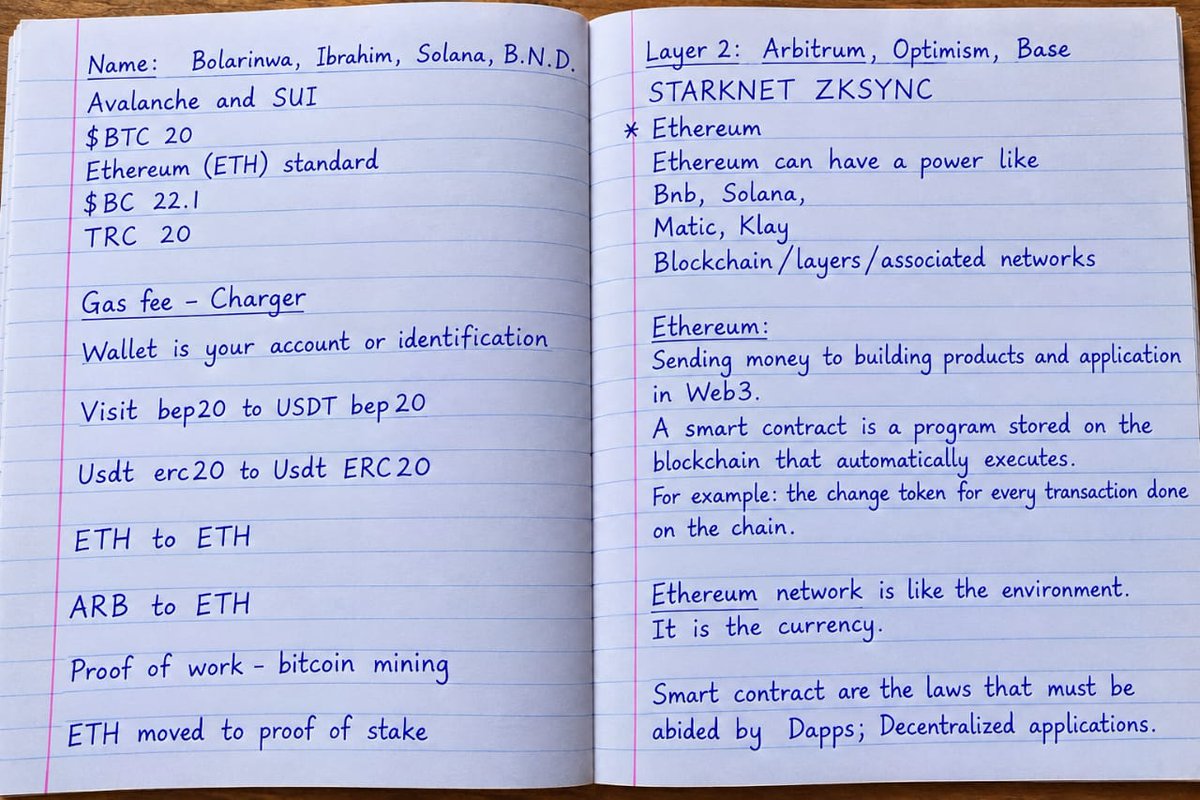 Name: Bolarinwa, Ibrahim, Solana, B.N.D.
Avalanche and SUI
$BTC 20
Ethereum (ETH) standard
$BC 22.1
TRC 20
Gas fee - Charger
Wallet is your account or identification
Visit bep20 to USDT bep20
Usdt erc20 to Usdt ERC20
ETH to ETH
ARB to ETH
Proof of work - bitcoin mining
ETH moved to proof of stake
Layer 2: Arbitrum, Optimism, Base
STARKNET ZKSYNC
* Ethereum
Ethereum can have a power like
Bnb, Solana,
Matic, Klay
Blockchain/layers/associated networks
Ethereum:
Sending money to building products and application
in Web3.
A smart contract is a program stored on the
blockchain that automatically executes.
For example: the change token for every transaction done
on the chain.
Ethereum network is like the environment.
It is the currency.
Smart contract are the laws that must be
abided by Dapps; Decentralized applications.